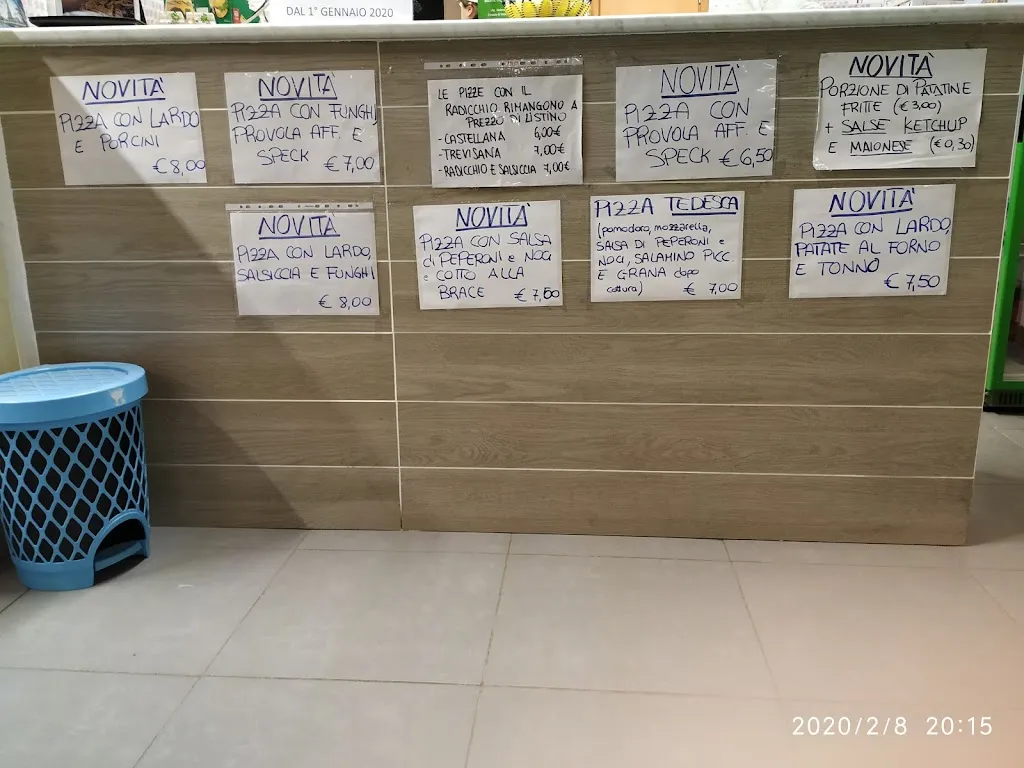 DAL 1° GENNAIO 2020
NOVITÀ
PIZZA CON LARDO
E PORCINI
€ 8,00
NOVITÀ
PIZZA CON FUNGHI,
PROVOLA AFF. E
SPECK € 7,00
LE PIZZE CON IL
RADICCHIO RIMANGONO A
PREZZO DI LISTINO
-CASTELLANA 6,00€
-TREVISANA 7,00€
-RADICCHIO E SALSICCIA 7,00€
NOVITÀ
PIZZA CON
PROVOLA AFF. E
SPECK € 6,50
NOVITÀ
PORZIONE DI PATATINE
FRITE (€ 3,00)
+ SALSE KETCHUP
E MAIONESE (€ 0,30)
NOVITÀ
PIZZA CON LARDO,
SALSICCIA E FUNGHI
€ 8,00
NOVITÀ
PIZZA CON SALSA
di PEPERONI e NOCI
e COTTO ALLA
BRACE € 7,50
PIZZA TEDESCA
(pomodoro, mozzarella,
SALSA DI PEPERONI e
NOCI, SALAMINO PICC.
E GRANA dopo
cottura) € 7,00
NOVITÀ
PIZZA CON LARDO,
PATATE AL FORNO
E TONNO
€ 7,50
2020/2/8 20:15